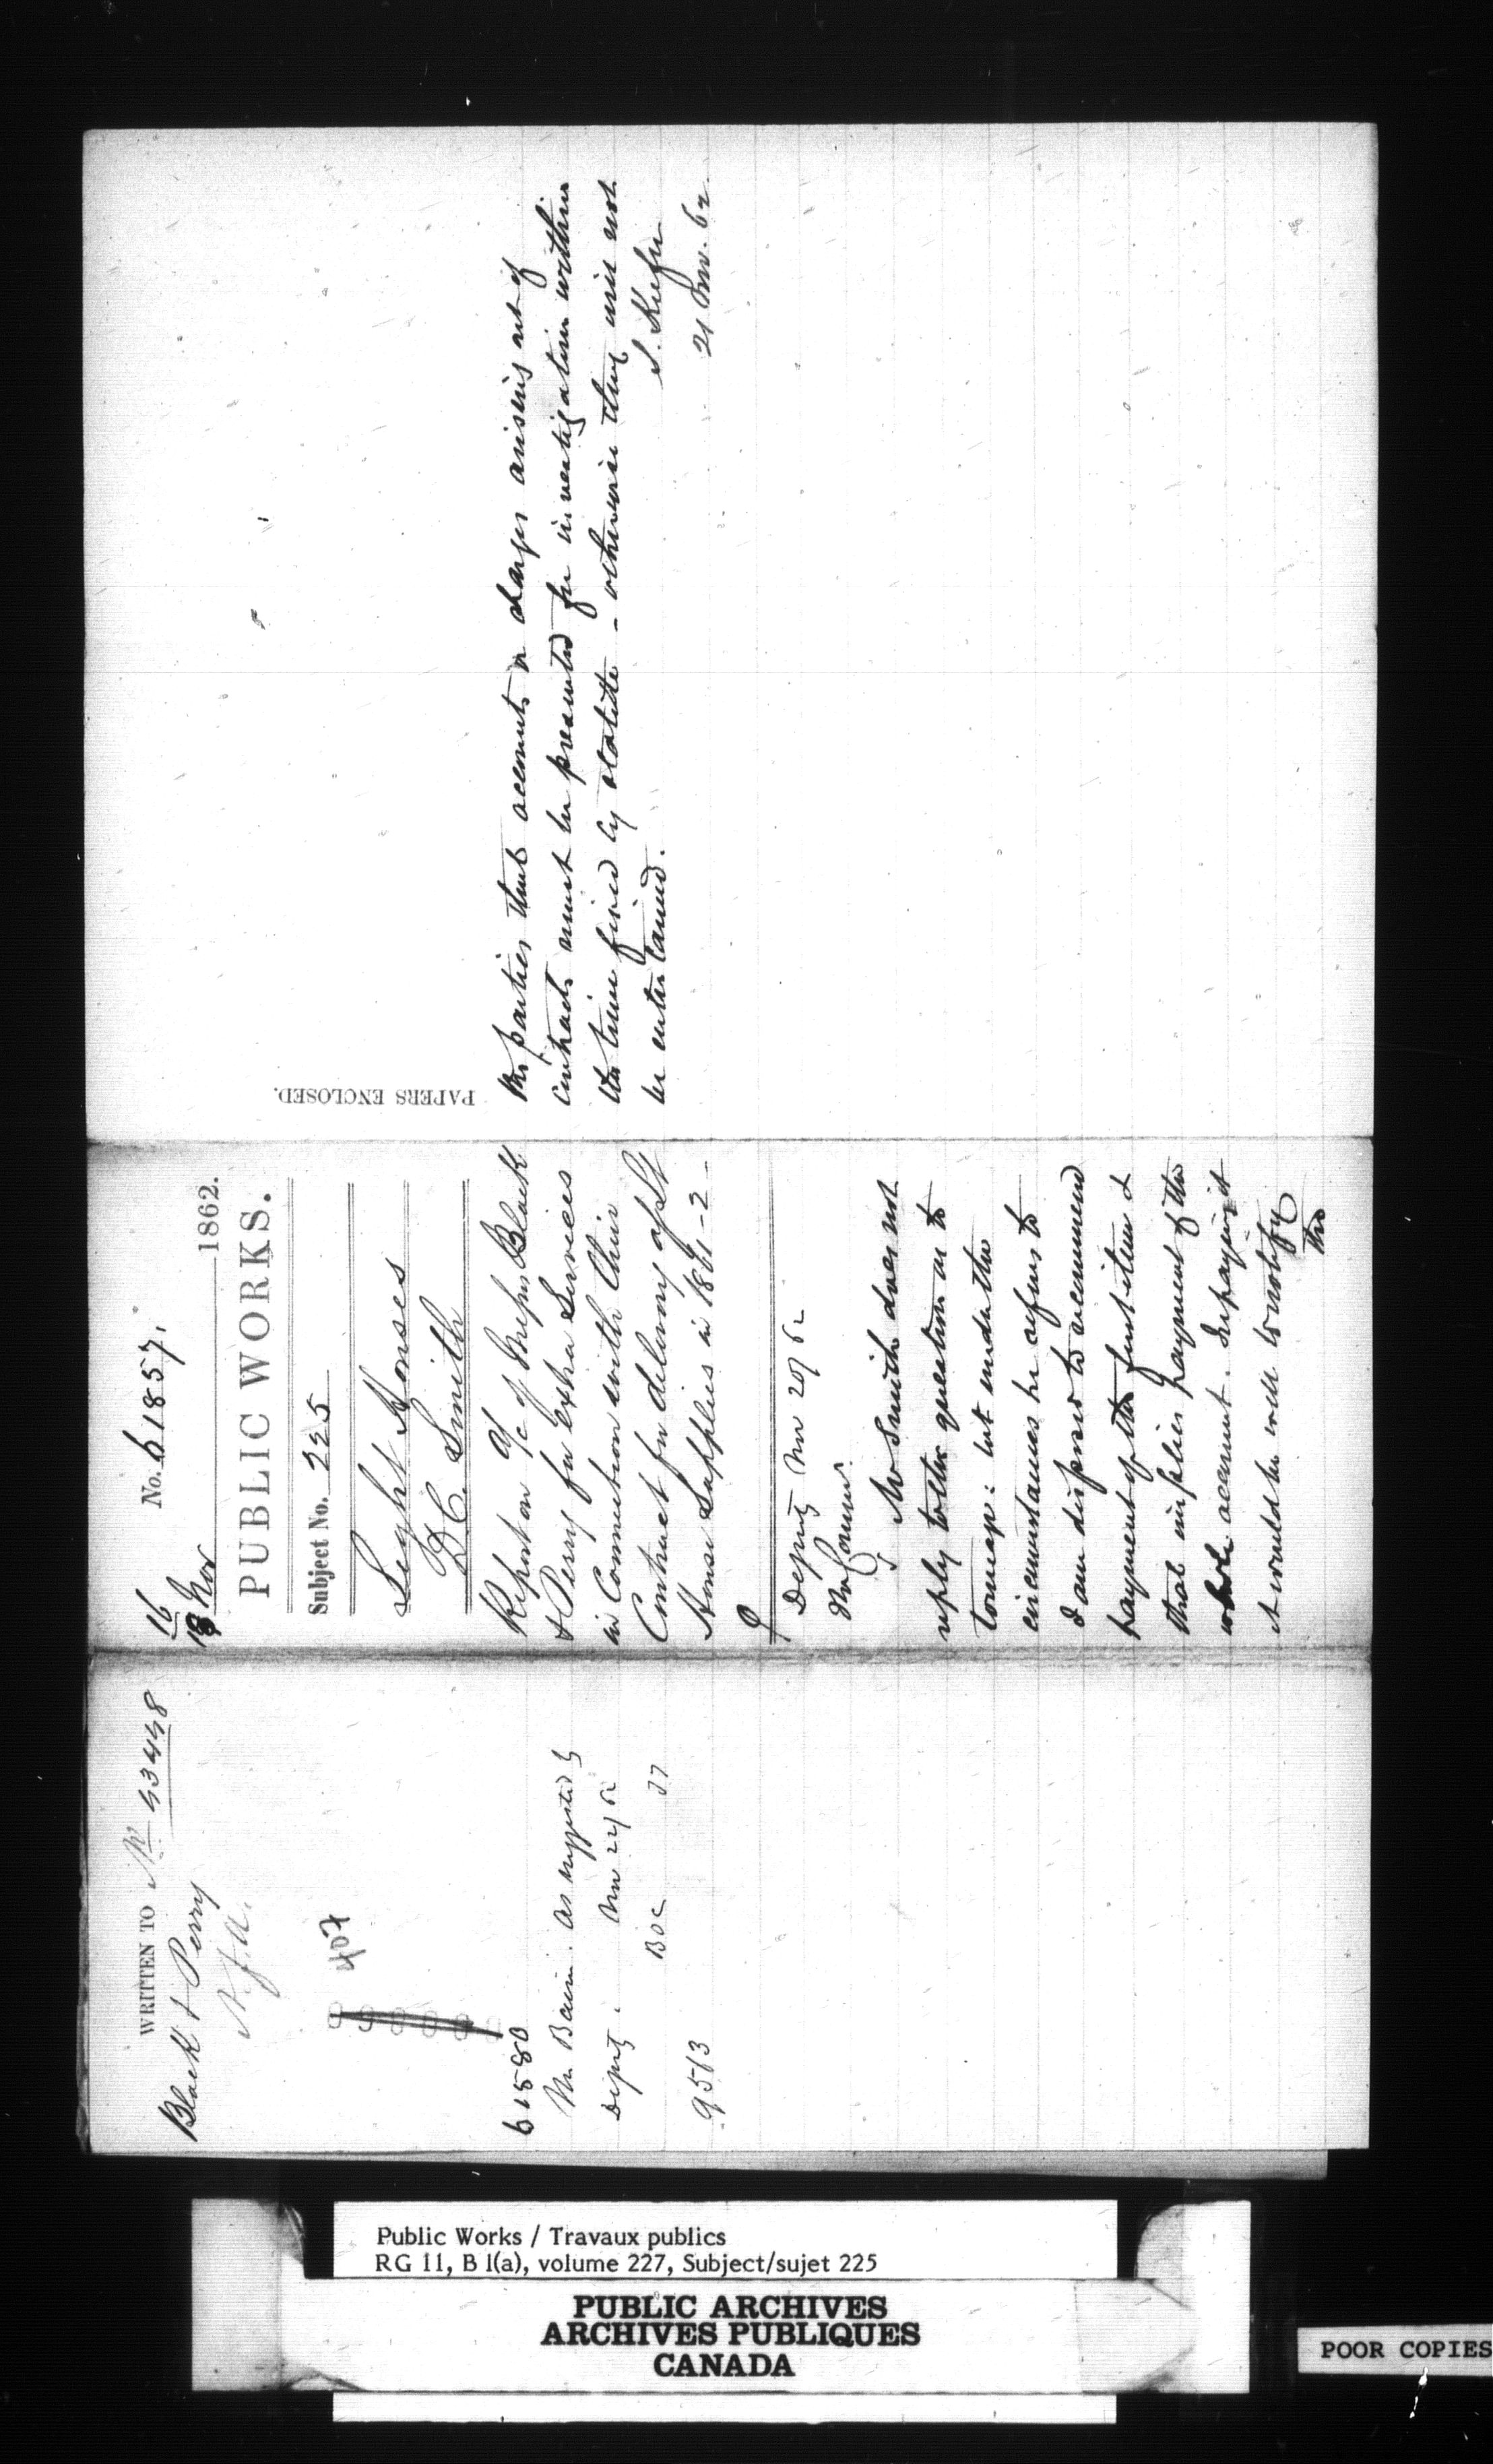 WRITTEN TO No 43448
Black & Perry
407
61580
Mr Bain. As suggested by
Deputy. Nov 22/62
9513
16
18 Nov No. 61857, 1862.
PUBLIC WORKS.
Subject No. 225
Light Houses
D C. Smith
Report on a/c of Messrs Black
& Perry for extra Services
in Connection with their
Contract for delivery of Lt
House Supplies in 1861-2-
Deputy Nov 20/62
Mr Smith does not
reply to the question as to
towage: but under the
circumstances he refers to
I am disposed to recommend
payment of the first item &
that implies payment of the
whole account. In paying it
it would be well to notify
the
PAPERS ENCLOSED.
the parties that accounts or charges arising out of
contracts must be presented for investigation within
the time fixed by statute - otherwise they will not
be entertained.
S. Keefer
21 Nov. 62.
Public Works / Travaux publics
RG 11, B 1(a), volume 227, Subject/sujet 225
PUBLIC ARCHIVES
ARCHIVES PUBLIQUES
CANADA
POOR COPIES